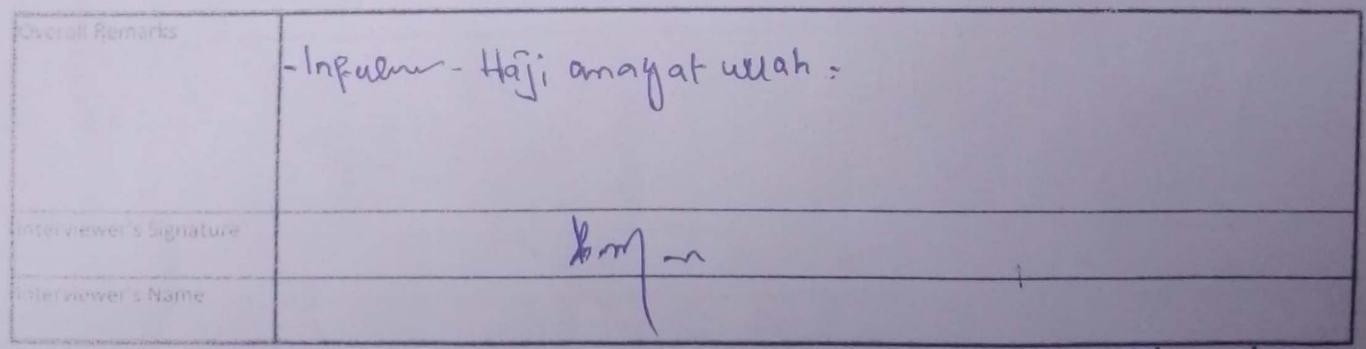 Overall Remarks
- Haji anayat ullah
Interviewer's Signature
Interviewer's Name